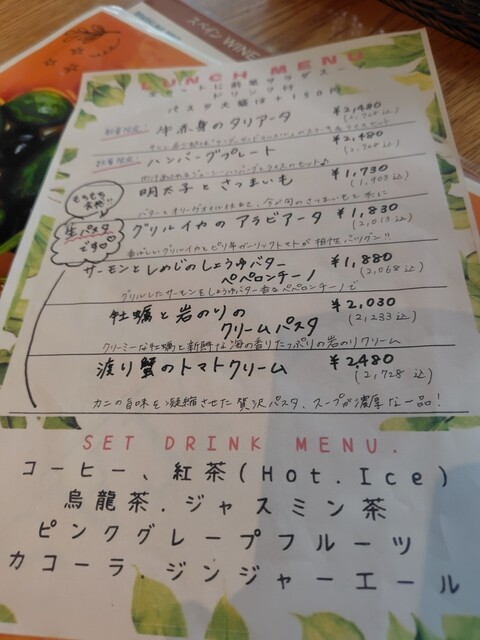 スペイン WINE
LUNCH MENU
ドリンク付
パスタ大盛は+150円
数量限定! 牛赤身のタリアータ ¥2,480
(2,728込)
数量限定! ハンバーグプレート ¥2,480
(2,728込)
明太子とさつまいも ¥1,730
(1,903込)
もちもち
生パスタ
です
グリルイカのアラビアータ ¥1,830
(2,013込)
香ばしいグリルイカとピリ辛ガーリックトマトが相性バツグン!!
サーモンとしめじのしょうゆバター
ペペロンチーノ ¥1,880
(2,068込)
グリルしたサーモンをしょうゆバター香るペペロンチーノで
牡蠣と岩のりの
クリームパスタ ¥2,030
(2,233込)
クリーミーな牡蠣と新鮮な海の香りたっぷりの岩のりクリーム
渡り蟹のトマトクリーム ¥2,480
(2,728込)
カニの旨味を凝縮させた贅沢パスタ、スープが濃厚な一品!
SET DRINK MENU.
コーヒー、紅茶(Hot.Ice)
烏龍茶.ジャスミン茶
ピンクグレープフルーツ
カコーラ.ジンジャーエール